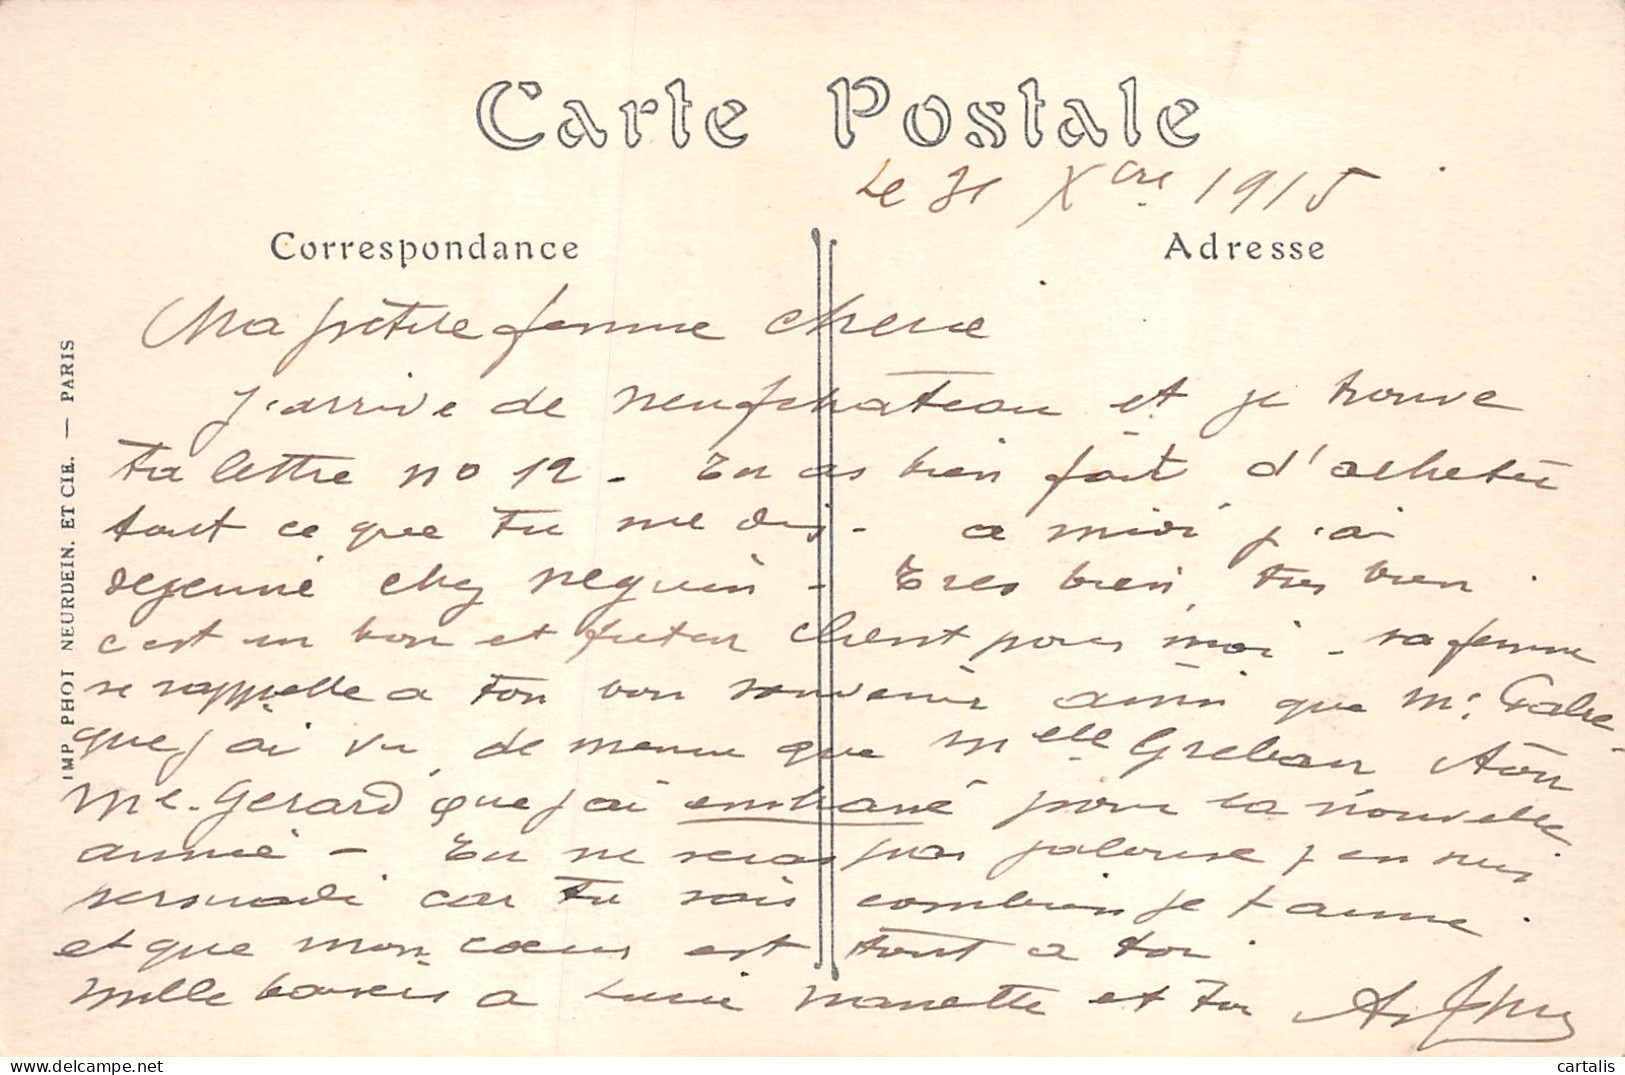 Carte Postale
Le 31 Xbre 1915
Correspondance
Adresse
Ma petite femme cherie
J'arrive de neufchateau et je trouve
ta lettre no 12 - Tu as bien fait d'acheter
tout ce que tu me dis - a midi j'ai
dejeuné chez seguin - Tres bien, tres bien.
c'est un bon et futur client pour moi - sa femme
se rappelle a ton bon souvenir ainsi que Mr
que j'ai vu, de meme que Melle Greban
Me. Gerard que j'ai embrassé pour la nouvelle
année - Tu ne seras pas jalouse j'en suis
persuadé car tu sais combien je t'aime.
et que mon coeur est tout a toi.
mille baisers a Lucie nanette et toi
IMP PHOT NEURDEIN. ET CIE. — PARIS
cartalis